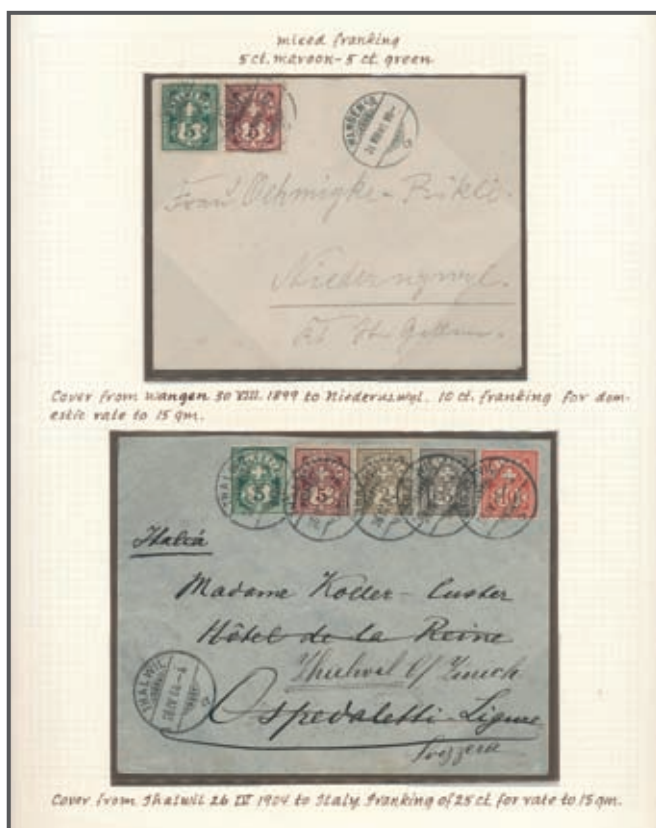 mixed franking
5 ct. maroon - 5 ct. green
5
5
WANGEN
Frau Oehmigke - Rikli.
Niederuzwyl.
Kt. St. Gallen.
Cover from Wangen 30 VIII. 1899 to Niederuzwyl. 10 ct. franking for dom-
estic rate to 15 gm.
5
5
2
10
Italia
Madame Koller - Custer
Hôtel de la Reine
Thalwil b/ Zurich
THALWIL
26 IV 04 - 4
Ospedaletti - Ligure
Svizzera
Cover from Thalwil 26 IV 1904 to Italy. Franking of 25 ct. for rate to 15 gm.